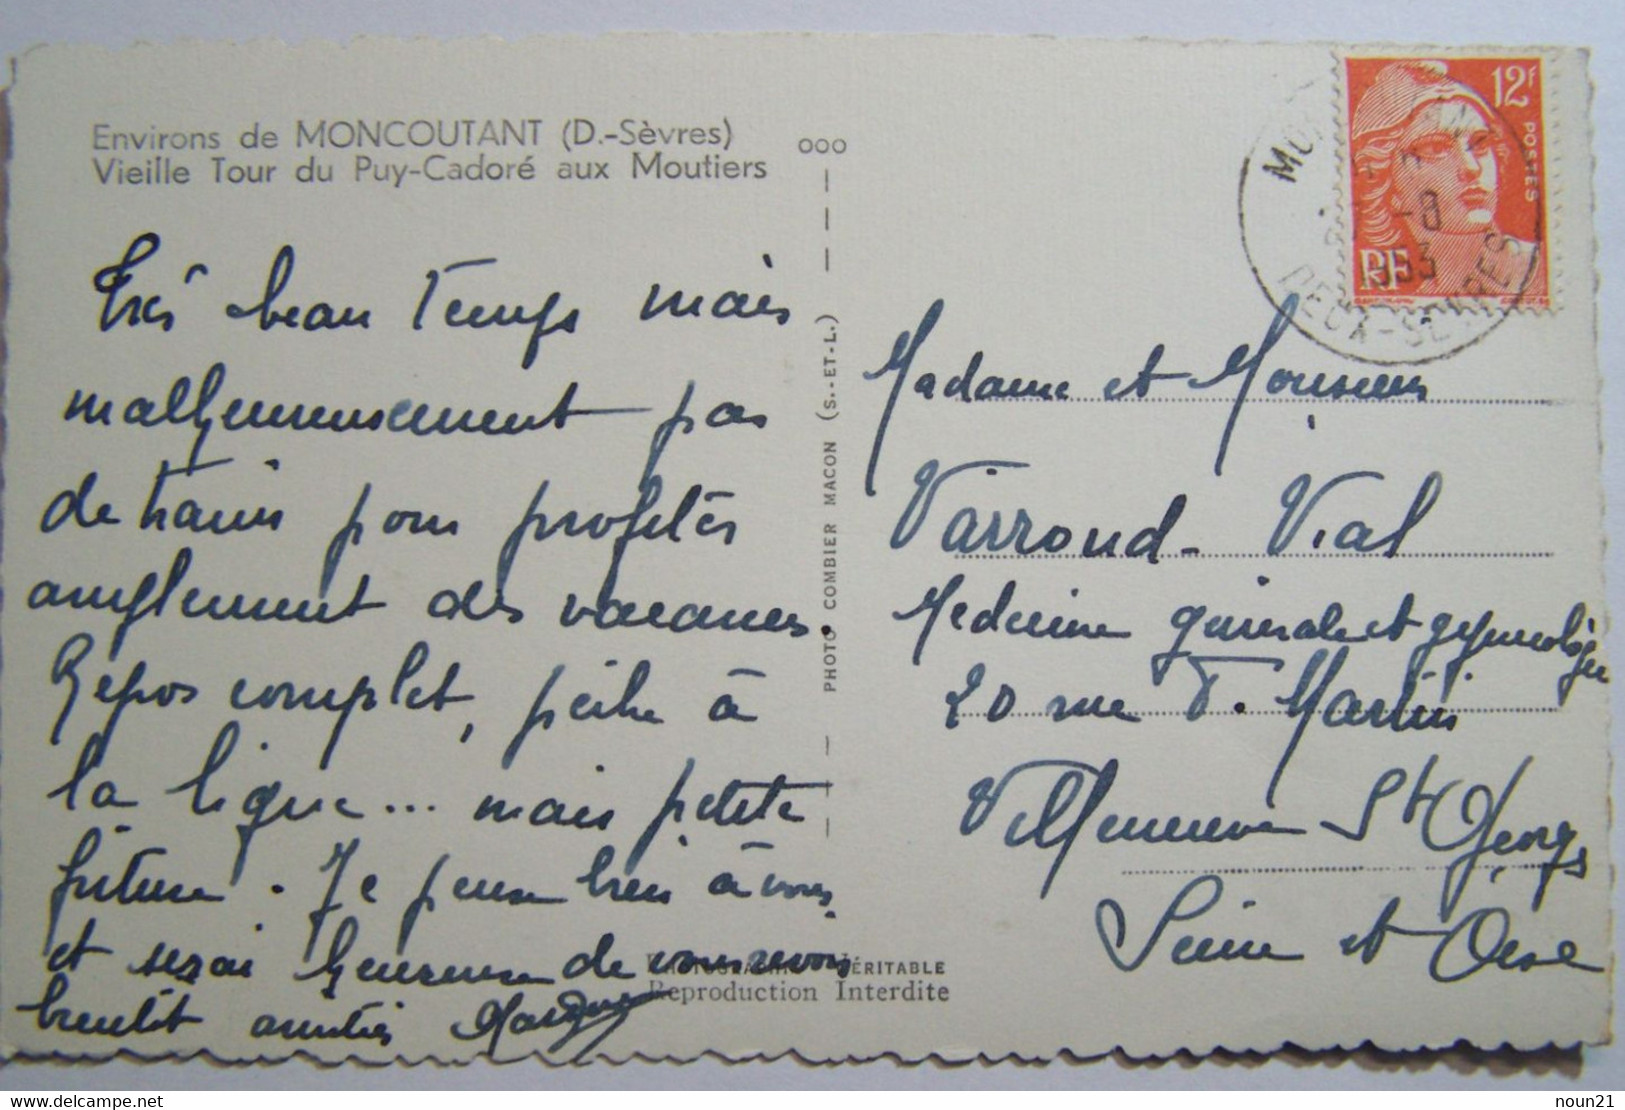 Environs de MONCOUTANT (D.-Sèvres)
Vieille Tour du Puy-Cadoré aux Moutiers
ooo
Très beau Temps mais
malheureusement pas
de train pour profiter
amplement des vacances.
Repos complet, pêche à
la ligne... mais petite
friture. Je pense bien à vous
et serai heureuse de vous revoir
bientôt amitiés
PHOTO COMBIER MACON (S.-ET-L.)
VÉRITABLE
Reproduction Interdite
12F
POSTES
RF
-8
1953
DEUX-SEVRES
Madame et Monsieur
Varroud-Vial
Medecine générale et gynecologique
20 rue F. Martin
Villeneuve St Georges
Seine et Oise
delcampe.net
noun21